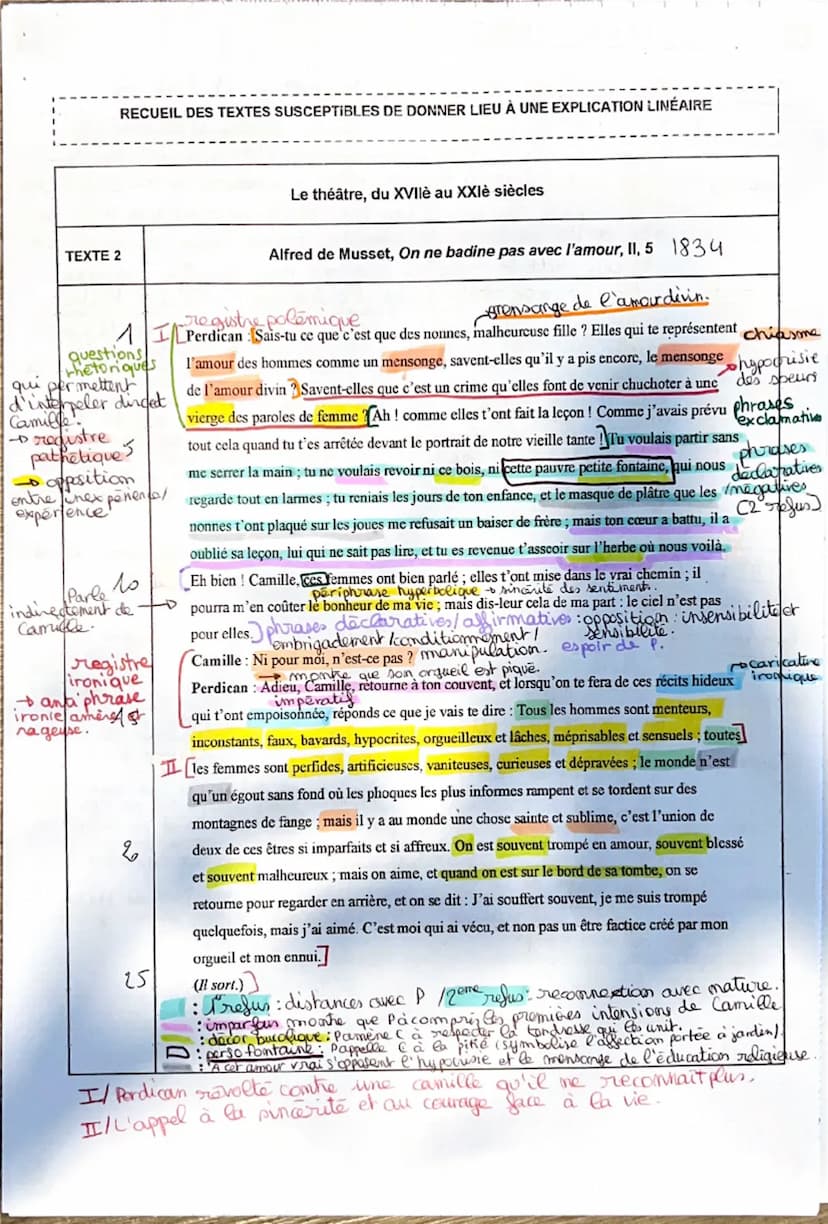 RECUEIL DES TEXTES SUSCEPTIBLES DE DONNER LIEU À UNE EXPLICATION LINÉAIRE
Le théâtre, du XVIIè au XXIè siècles
TEXTE 2
Alfred de Musset, On ne badine pas avec l'amour, II, 5 1834
mensonge de l'amour divin.
I
registre polémique
1
questions rhétoriques
qui permettent
d'interpeler direct
Camille.
→ registre
pathétique
→ opposition
entre inexpérience/
expérience
5
Perdican : Sais-tu ce que c'est que des nonnes, malheureuse fille ? Elles qui te représentent
chiasme
l'amour des hommes comme un mensonge, savent-elles qu'il y a pis encore, le mensonge
hypocrisie
des soeurs
de l'amour divin ? Savent-elles que c'est un crime qu'elles font de venir chuchoter à une
vierge des paroles de femme ? Ah ! comme elles t'ont fait la leçon ! Comme j'avais prévu
phrases
exclamatives
tout cela quand tu t'es arrêtée devant le portrait de notre vieille tante ! Tu voulais partir sans
me serrer la main ; tu ne voulais revoir ni ce bois, ni cette pauvre petite fontaine, qui nous
phrases
déclaratives
/négatives
(2 refus)
regarde tout en larmes ; tu reniais les jours de ton enfance, et le masque de plâtre que les
nonnes t'ont plaqué sur les joues me refusait un baiser de frère ; mais ton cœur a battu, il a
oublié sa leçon, lui qui ne sait pas lire, et tu es revenue t'asseoir sur l'herbe où nous voilà.
10
Parle
indirectement de
Camille.
Eh bien ! Camille, ces femmes ont bien parlé ; elles t'ont mise dans le vrai chemin ; il
périphrase hyperbolique → sincérité des sentiments.
pourra m'en coûter le bonheur de ma vie ; mais dis-leur cela de ma part : le ciel n'est pas
pour elles.
phrases déclaratives/affirmatives : opposition : insensibilité et
sensibilité.
embrigadement/conditionnement/
manipulation.
espoir de P.
Camille : Ni pour moi, n'est-ce pas ?
→ montre que son orgueil est piqué.
registre
ironique
→ antiphrase
ironie amère et
rageuse.
15
→ caricature
ironique
Perdican : Adieu, Camille, retourne à ton couvent, et lorsqu'on te fera de ces récits hideux
impératif
qui t'ont empoisonnée, réponds ce que je vais te dire : Tous les hommes sont menteurs,
inconstants, faux, bavards, hypocrites, orgueilleux et lâches, méprisables et sensuels ; toutes
II
les femmes sont perfides, artificieuses, vaniteuses, curieuses et dépravées ; le monde n'est
qu'un égout sans fond où les phoques les plus informes rampent et se tordent sur des
montagnes de fange ; mais il y a au monde une chose sainte et sublime, c'est l'union de
20
deux de ces êtres si imparfaits et si affreux. On est souvent trompé en amour, souvent blessé
et souvent malheureux ; mais on aime, et quand on est sur le bord de sa tombe, on se
retourne pour regarder en arrière, et on se dit : J'ai souffert souvent, je me suis trompé
quelquefois, mais j'ai aimé. C'est moi qui ai vécu, et non pas un être factice créé par mon
orgueil et mon ennui.
25
(Il sort.)
: 1er refus : distances avec P / 2eme refus : reconnection avec nature.
: imparfais montre que P à compris les premières intensions de Camille
: décor bucolique : P amène C à respecter la tendresse qui les unit.
: perso fontaine : P appelle C à la pitié (symbolise l'affection portée à jardin).
: A cet amour vrai s'opposent l'hypocrisie et le mensonge de l'éducation religieuse.
I/ Perdican révolté contre une camille qu'il ne reconnait plus.
II/ L'appel à la sincérité et au courage face à la vie.